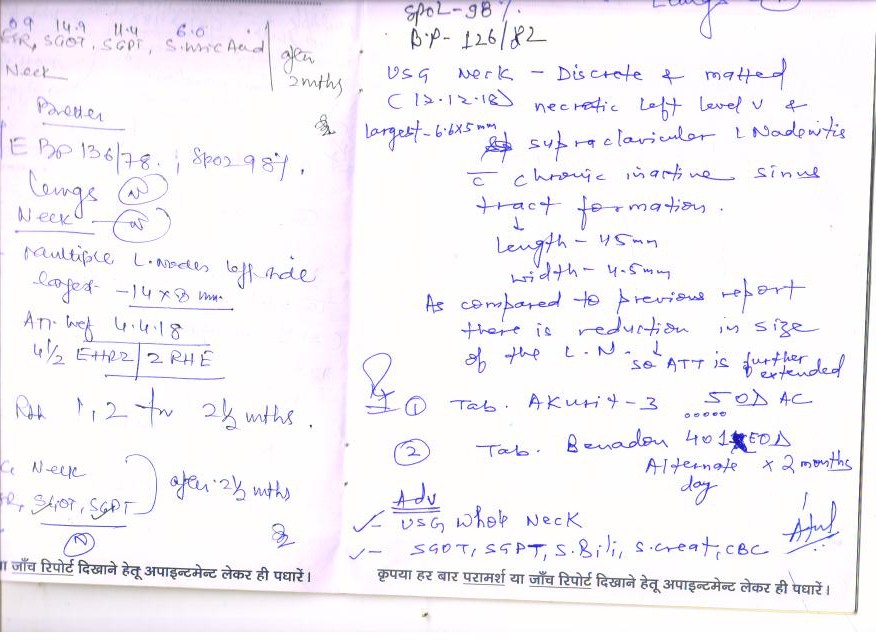 0.9 14.9 11.4 6.0
SGOT, SGPT, S. Uric Acid
after
2 mths
Neck
Better
BP 136/78. ; SpO2 98%.
Lungs N
Neck - N
Multiple L. Nodes left side
largest - 14 x 8 mm.
ATT. wef 4.4.18
4 1/2 EHRZ / 2 RHE
1, 2 for 2 1/2 mths.
Neck
SGOT, SGPT
after 2 1/2 mths
N
जाँच रिपोर्ट दिखाने हेतू अपाइन्टमेन्ट लेकर ही पधारें।
SPO2 - 98 %.
B.P - 126/82
USG Neck - Discrete & matted
(12.12.18) necrotic left level V &
largest - 6.6x5mm supraclavicular LNadenitis
c̄ chronic inactive sinus
tract formation.
↓
Length - 45mm
width - 4.5mm
As compared to previous report
there is reduction in size
of the L.N. ↓
so ATT is further
extended
① Tab. AKurit-3 5 OD AC
② Tab. Benadon 40 1 EOD
Alternate day x 2 months
Adv
USG Whole Neck
SGOT, SGPT, S.Bili, S.creat, CBC
कृपया हर बार परामर्श या जाँच रिपोर्ट दिखाने हेतू अपाइन्टमेन्ट लेकर ही पधारें।